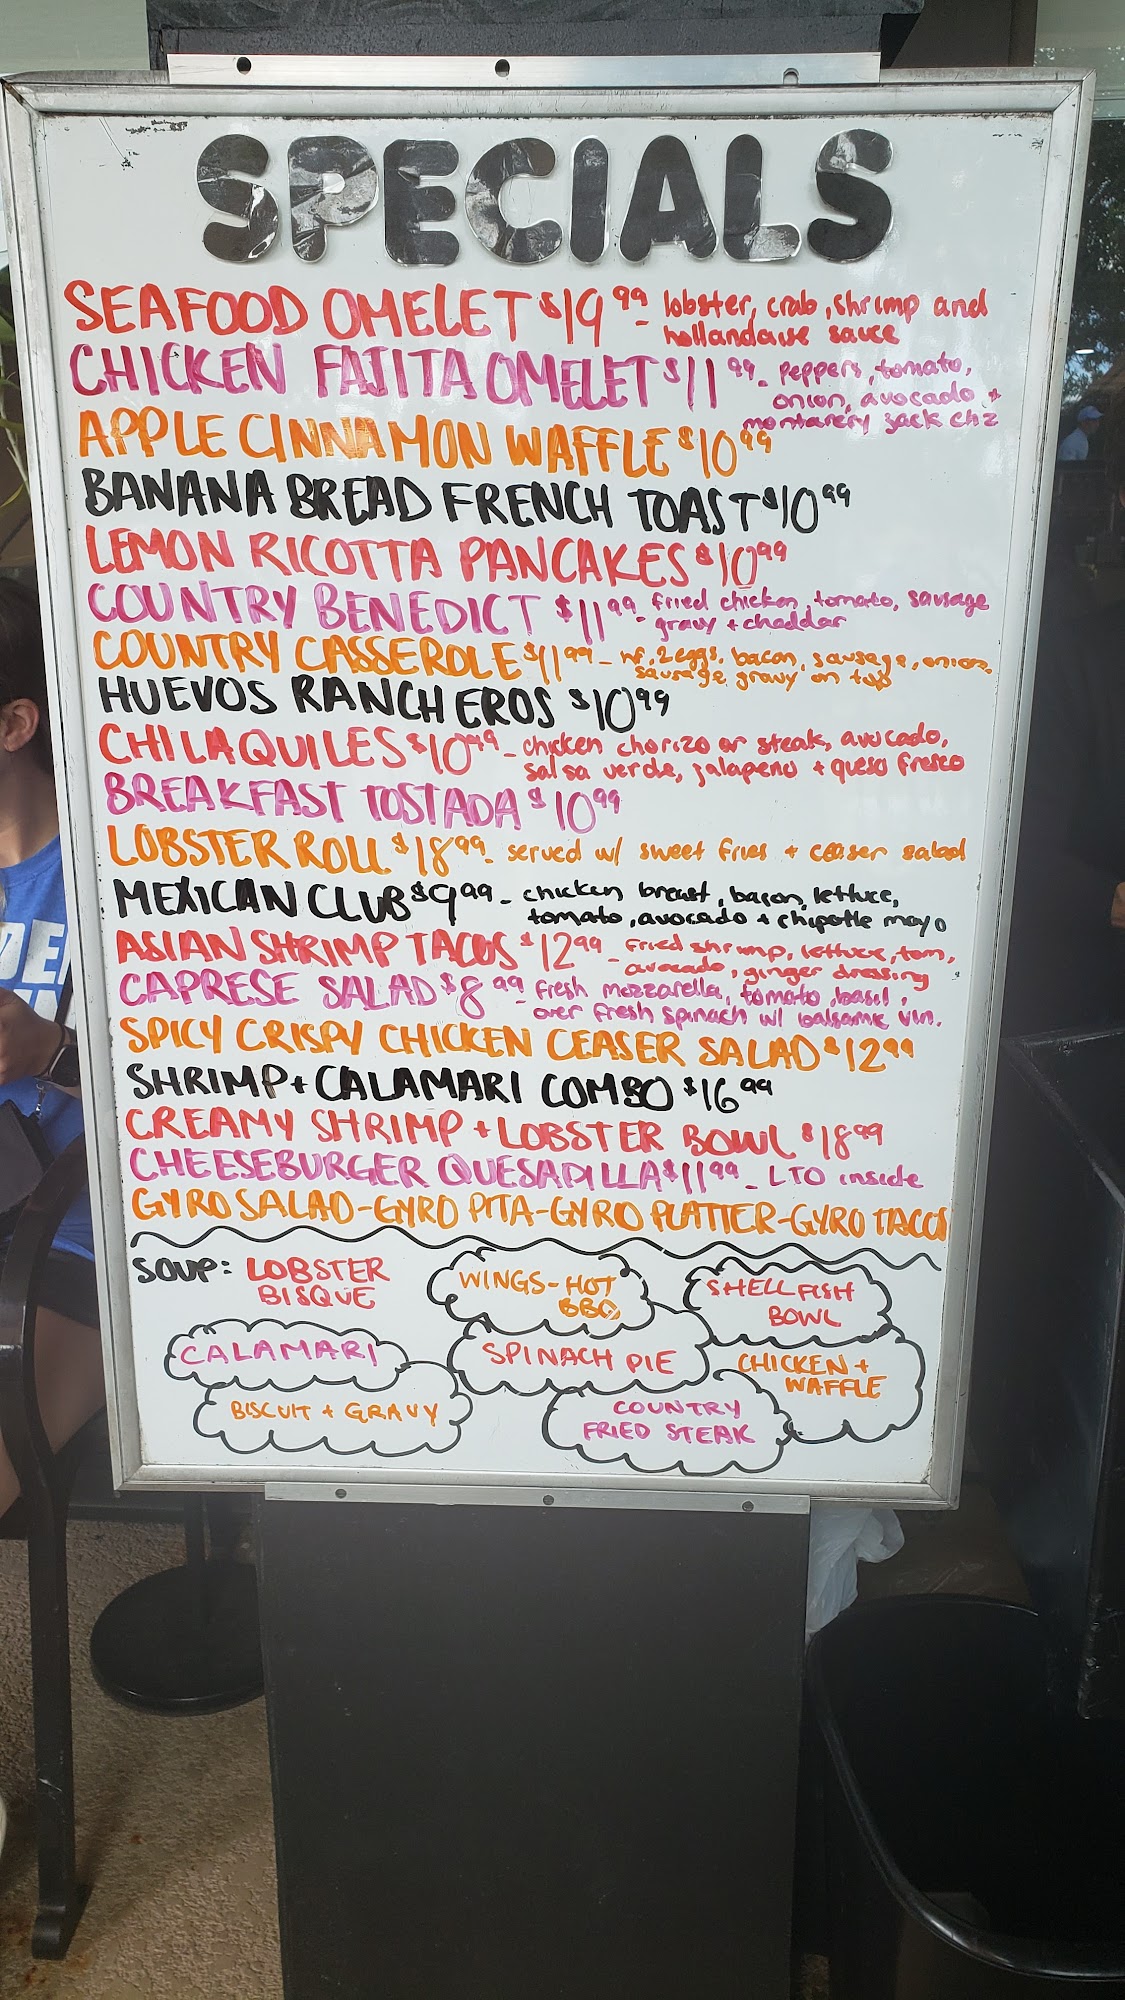 SPECIALS
SEAFOOD OMELET $19.99 - lobster, crab, shrimp and
hollandaise sauce
CHICKEN FAJITA OMELET $11.99 - peppers, tomato,
onion, avocado +
monterery jack chz
APPLE CINNAMON WAFFLE $10.99
BANANA BREAD FRENCH TOAST $10.99
LEMON RICOTTA PANCAKES $10.99
COUNTRY BENEDICT $11.99 - fried chicken, tomato, sausage
gravy + cheddar
COUNTRY CASSEROLE $11.99 - HF, 2 eggs, bacon, sausage, onion,
sausage gravy on top
HUEVOS RANCHEROS $10.99
CHILAQUILES $10.99 - chicken chorizo or steak, avocado,
salsa verde, jalapeno + queso fresco
BREAKFAST TOSTADA $10.99
LOBSTER ROLL $18.99 - served w/ sweet fries + ceaser salad
MEXICAN CLUB $9.99 - chicken breast, bacon, lettuce,
tomato, avocado + chipotle mayo
ASIAN SHRIMP TACOS $12.99 - fried shrimp, lettuce, tom,
avocado, ginger dressing
CAPRESE SALAD $8.99 - fresh mozzarella, tomato, basil,
over fresh spinach w/ balsamic vin.
SPICY CRISPY CHICKEN CEASER SALAD $12.99
SHRIMP + CALAMARI COMBO $16.99
CREAMY SHRIMP + LOBSTER BOWL $18.99
CHEESEBURGER QUESADILLA $11.99 - LTO inside
GYRO SALAD - GYRO PITA - GYRO PLATTER - GYRO TACOS
SOUP: LOBSTER
BISQUE
WINGS - HOT
BBQ
SHELLFISH
BOWL
CALAMARI
SPINACH PIE
CHICKEN +
WAFFLE
BISCUIT + GRAVY
COUNTRY
FRIED STEAK